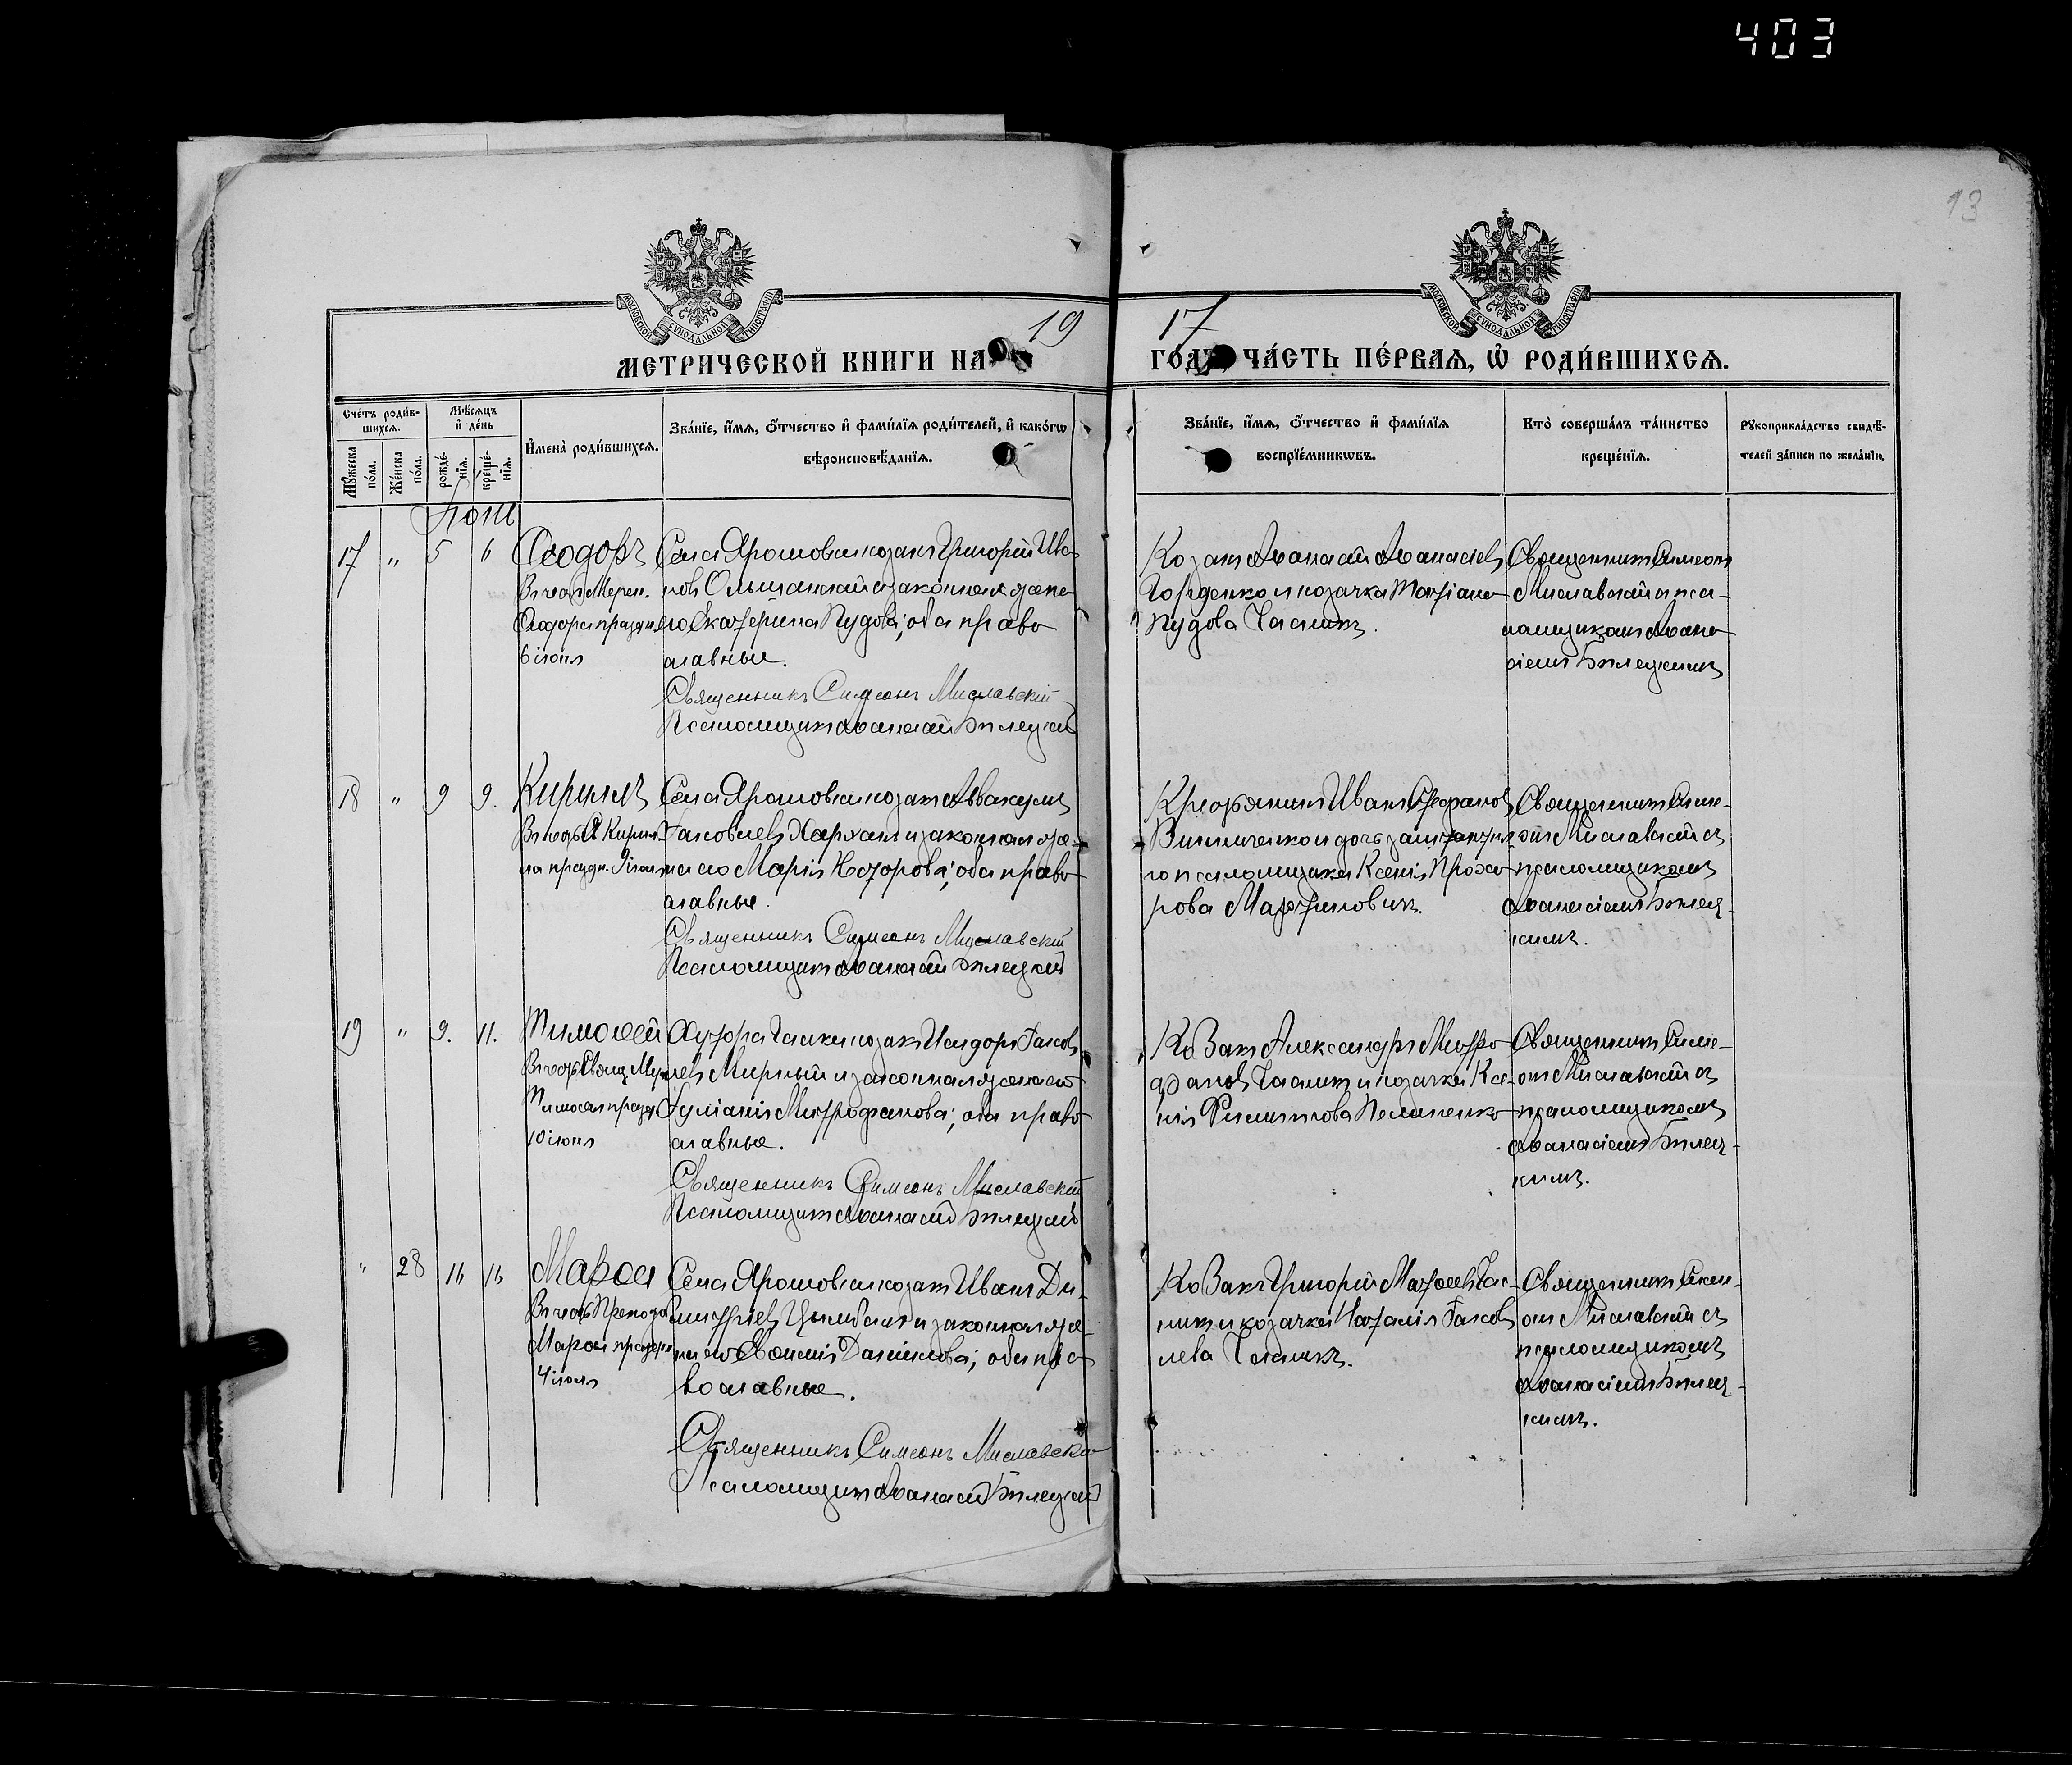 403
13
МОСКОВСКОЙ СУНОДАЛЬНОЙ ТИПОГРАФІИ
МОСКОВСКОЙ СУНОДАЛЬНОЙ ТИПОГРАФІИ
МЕТРИЧЕСКОЙ КНИГИ НА 19
17 ГОДЪ ЧА́СТЬ ПЕ́РВАѦ, Ѡ҆ РОДИ́ВШИХСѦ.
Сче́тъ роди́в-
шихсѧ.
Мꙋ́жеска по́ла.
Же́нска по́ла.
Мѣ́сѧцъ
и҆ де́нь
рожде́-
нїѧ.
креще́-
нїѧ.
И҆мена̀ роди́вшихсѧ.
Зва́нїе, и҆́мѧ, ѻ҆́тчество и҆ фами́лїѧ роди́телей, и҆ како́гѡ
вѣроисповѣ́данїѧ.
Зва́нїе, и҆́мѧ, ѻ҆́тчество и҆ фами́лїѧ
воспрїе́мникѡвъ.
Кто̀ соверша́лъ та́инство
креще́нїѧ.
Рꙋкоприкла́дство свидѣ́-
телей за́писи по жела́нїю.
Іюнь
17 " 5 6
Ѳеодоръ
Въ честь
Ѳеодора праздн.
6 іюня
Села Ярошовки козакъ Григорій Ива-
новъ Ольшанскій и законная жена
его Екатерина Пудова; оба право
славные.
Священникъ Симеонъ Миславскій
Псаломщикъ Аѳанасій Билецкій
Козакъ Аѳанасій Аѳанасіевъ
Горденко и козачка Татіана
Пудова Чаалыкъ.
Священникъ Симеонъ
Миславскій и пса-
ломщикомъ Аѳана
сіемъ Билецкимъ
18 " 9 9.
Кириллъ
Въ честь Св. Кирил-
ла праздн. 9 іюня
Села Ярошовки козакъ Аввакумъ
Іаковлевъ Харханъ и законная же-
на его Марія Несторова; оба право
славные.
Священникъ Симеонъ Миславскій
Псаломщикъ Аѳанасій Билецкій
Крестьянинъ Иванъ Стефановъ
Винниченко и дочь
го псаломщика Ксенія Прохо
рова Мартиновичъ.
Священникъ Симе-
онъ Миславскій съ
псаломщикомъ
Аѳанасіемъ Билец-
кимъ.
19 " 9. 11.
Тимоѳей
Въ честь Свящ. Муч.
Тимоѳея праздн.
10 іюня
Хутора Чаики козакъ Исидоръ Іаков
левъ Мирный и законная жена его
Іуліанія Митрофанова; оба право
славные.
Священникъ Симеонъ Миславскій
Псаломщикъ Аѳанасій Билецкій
Козакъ Александръ Митро
фановъ Чаалыкъ и козачка Ксе-
нія Филиппова Пелипенко
Священникъ Симе-
онъ Миславскій съ
псаломщикомъ
Аѳанасіемъ Билец-
кимъ.
" 28 16 16
Марѳа
Въ честь Препод.
Марѳы праздн.
4 іюля
Села Ярошовки козакъ Иванъ Ди-
митріевъ Цымбалъ и законная же-
на его Евѳимія Даніилова; оба пра
вославные.
Священникъ Симеонъ Миславскій
Псаломщикъ Аѳанасій Билецкій
Козакъ Григорій Матѳеевъ Чаа-
лыкъ и козачка Наталія Іаков
лева Чаалыкъ.
Священникъ Симе-
онъ Миславскій съ
псаломщикомъ
Аѳанасіемъ Билец-
кимъ.